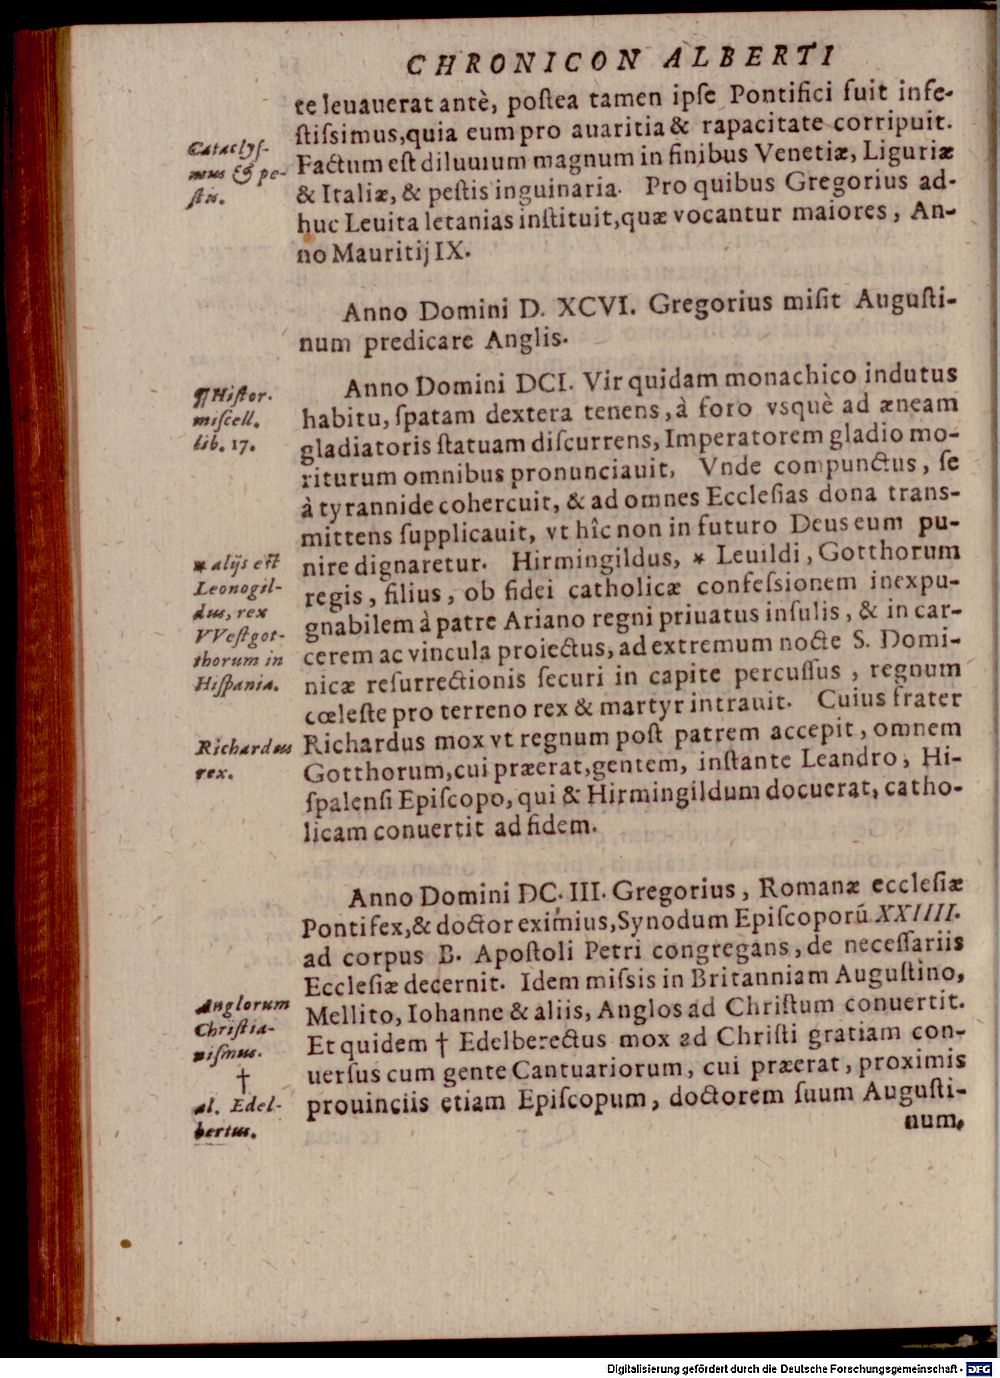 CHRONICON ALBERTI
te leuauerat antè, poſtea tamen ipſe Pontifici fuit infe-
ſtiſsimus, quia eum pro auaritia & rapacitate corripuit.
Cataclyſ-
mus & pe-
ſtis.
Factum eſt diluuium magnum in finibus Venetiæ, Liguriæ
& Italiæ, & peſtis inguinaria. Pro quibus Gregorius ad-
huc Leuita letanias inſtituit, quæ vocantur maiores, An-
no Mauritij IX.
Anno Domini D. XCVI. Gregorius miſit Auguſti-
num predicare Anglis.
¶ Hiſtor.
miſcell.
lib. 17.
Anno Domini DCI. Vir quidam monachico indutus
habitu, ſpatam dextera tenens, à foro vsquè ad æneam
gladiatoris ſtatuam diſcurrens, Imperatorem gladio mo-
riturum omnibus pronunciauit. Vnde compunctus, ſe
à tyrannide cohercuit, & ad omnes Eccleſias dona trans-
mittens ſupplicauit, vt hîc non in futuro Deus eum pu-
* alijs eſt
Leonogil-
dus, rex
VVeſtgot-
thorum in
Hiſpania.
nire dignaretur. Hirmingildus, * Leuildi, Gotthorum
regis, filius, ob fidei catholicæ confeſsionem inexpu-
gnabilem à patre Ariano regni priuatus inſulis, & in car-
cerem ac vincula proiectus, ad extremum nocte S. Domi-
nicæ reſurrectionis ſecuri in capite percuſſus, regnum
cœleſte pro terreno rex & martyr intrauit. Cuius frater
Richardus
rex.
Richardus mox vt regnum poſt patrem accepit, omnem
Gotthorum, cui præerat, gentem, inſtante Leandro, Hi-
ſpalenſi Epiſcopo, qui & Hirmingildum docuerat, catho-
licam conuertit ad fidem.
Anno Domini DC. III. Gregorius, Romanæ eccleſiæ
Pontifex, & doctor eximius, Synodum Epiſcoporũ XXIIII.
ad corpus B. Apoſtoli Petri congregans, de neceſſariis
Eccleſiæ decernit. Idem miſsis in Britanniam Auguſtino,
Anglorum
Chriſtia-
niſmus.
†
al. Edel-
bertus.
Mellito, Iohanne & aliis, Anglos ad Chriſtum conuertit.
Et quidem † Edelberectus mox ad Chriſti gratiam con-
uerſus cum gente Cantuariorum, cui præerat, proximis
prouinciis etiam Epiſcopum, doctorem ſuum Auguſti-
num,
Digitalisierung gefördert durch die Deutsche Forschungsgemeinschaft - DFG